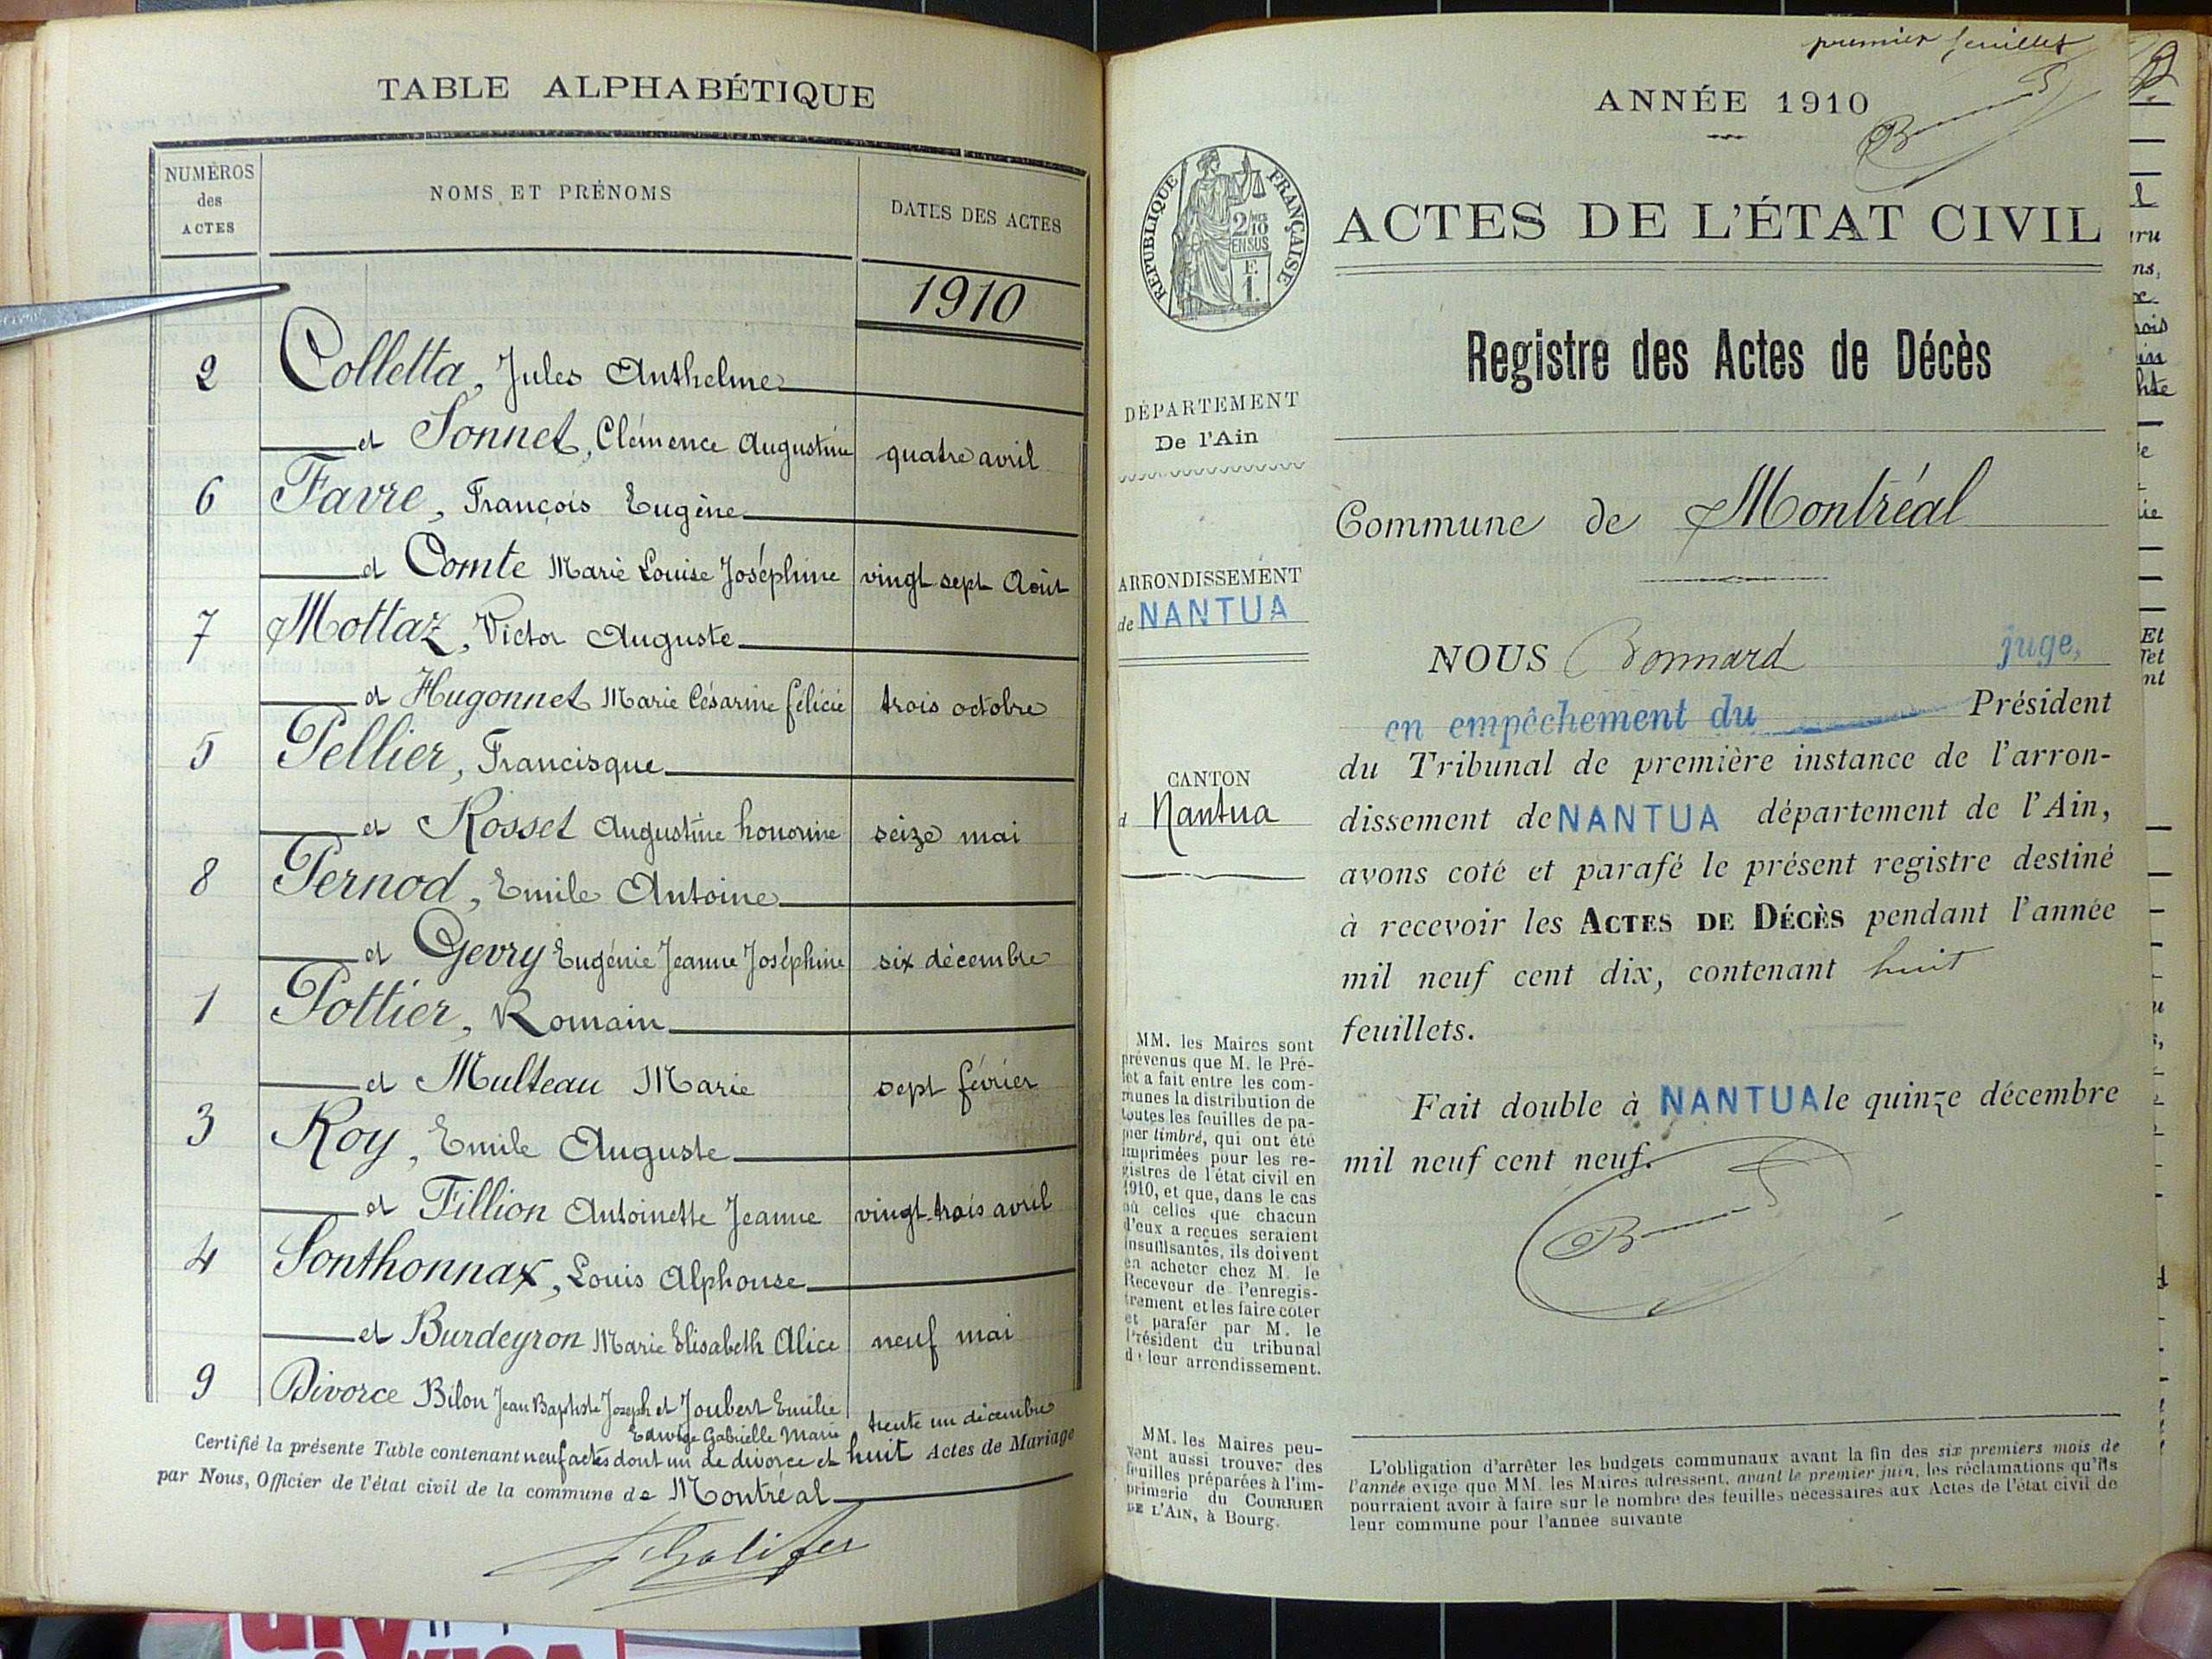 TABLE ALPHABÉTIQUE
NUMÉROS des ACTES
NOMS ET PRÉNOMS
DATES DES ACTES
1910
2 Colletta, Jules Anthelme
et Sonnet, Clémence Augustine quatre avril
6 Favre, François Eugène
et Comte Marie Louise Joséphine vingt sept Août
7 Mottaz, Victor Auguste
et Hugonnet Marie Césarine félicie trois octobre
5 Pellier, Francisque
et Rosset Augustine honorine seize mai
8 Pernod, Emile Antoine
et Gevry Eugénie Jeanne Joséphine six décembre
1 Pottier, Romain
et Multeau Marie sept février
3 Roy, Emile Auguste
et Fillion Antoinette Jeanne vingt-trois avril
4 Sonthonnax, Louis Alphonse
et Burdeyron Marie Elisabeth Alice neuf mai
9 Divorce Bilon Jean Baptiste Joseph et Joubert Emilie
Edwige Gabrielle Marie trente un décembre
Certifié la présente Table contenant neuf actes dont un de divorce et huit Actes de Mariage
par Nous, Officier de l'état civil de la commune de Montréal
premier feuillet
ANNÉE 1910
RÉPUBLIQUE FRANÇAISE
2/10
EN SUS
F.
1.
ACTES DE L'ÉTAT CIVIL
Registre des Actes de Décès
DÉPARTEMENT
De l'Ain
Commune de Montréal
ARRONDISSEMENT
de NANTUA
CANTON
d Nantua
NOUS Bonnard juge,
en empêchement du Président
du Tribunal de première instance de l'arron-
dissement de NANTUA département de l'Ain,
avons coté et parafé le présent registre destiné
à recevoir les ACTES DE DÉCÈS pendant l'année
mil neuf cent dix, contenant huit
feuillets.
Fait double à NANTUA le quinze décembre
mil neuf cent neuf.
MM. les Maires sont
prévenus que M. le Pré-
fet a fait entre les com-
munes la distribution de
toutes les feuilles de pa-
pier timbré, qui ont été
imprimées pour les re-
gistres de l'état civil en
1910, et que, dans le cas
où celles que chacun
d'eux a reçues seraient
insuffisantes, ils doivent
en acheter chez M. le
Receveur de l'enregis-
trement et les faire coter
et parafer par M. le
Président du tribunal
de leur arrondissement.
MM. les Maires peu-
vent aussi trouver des
feuilles préparées à l'im-
primerie du COURRIER
DE L'AIN, à Bourg.
L'obligation d'arrêter les budgets communaux avant la fin des six premiers mois de
l'année exige que MM. les Maires adressent, avant le premier juin, les réclamations qu'ils
pourraient avoir à faire sur le nombre des feuilles nécessaires aux Actes de l'état civil de
leur commune pour l'année suivante